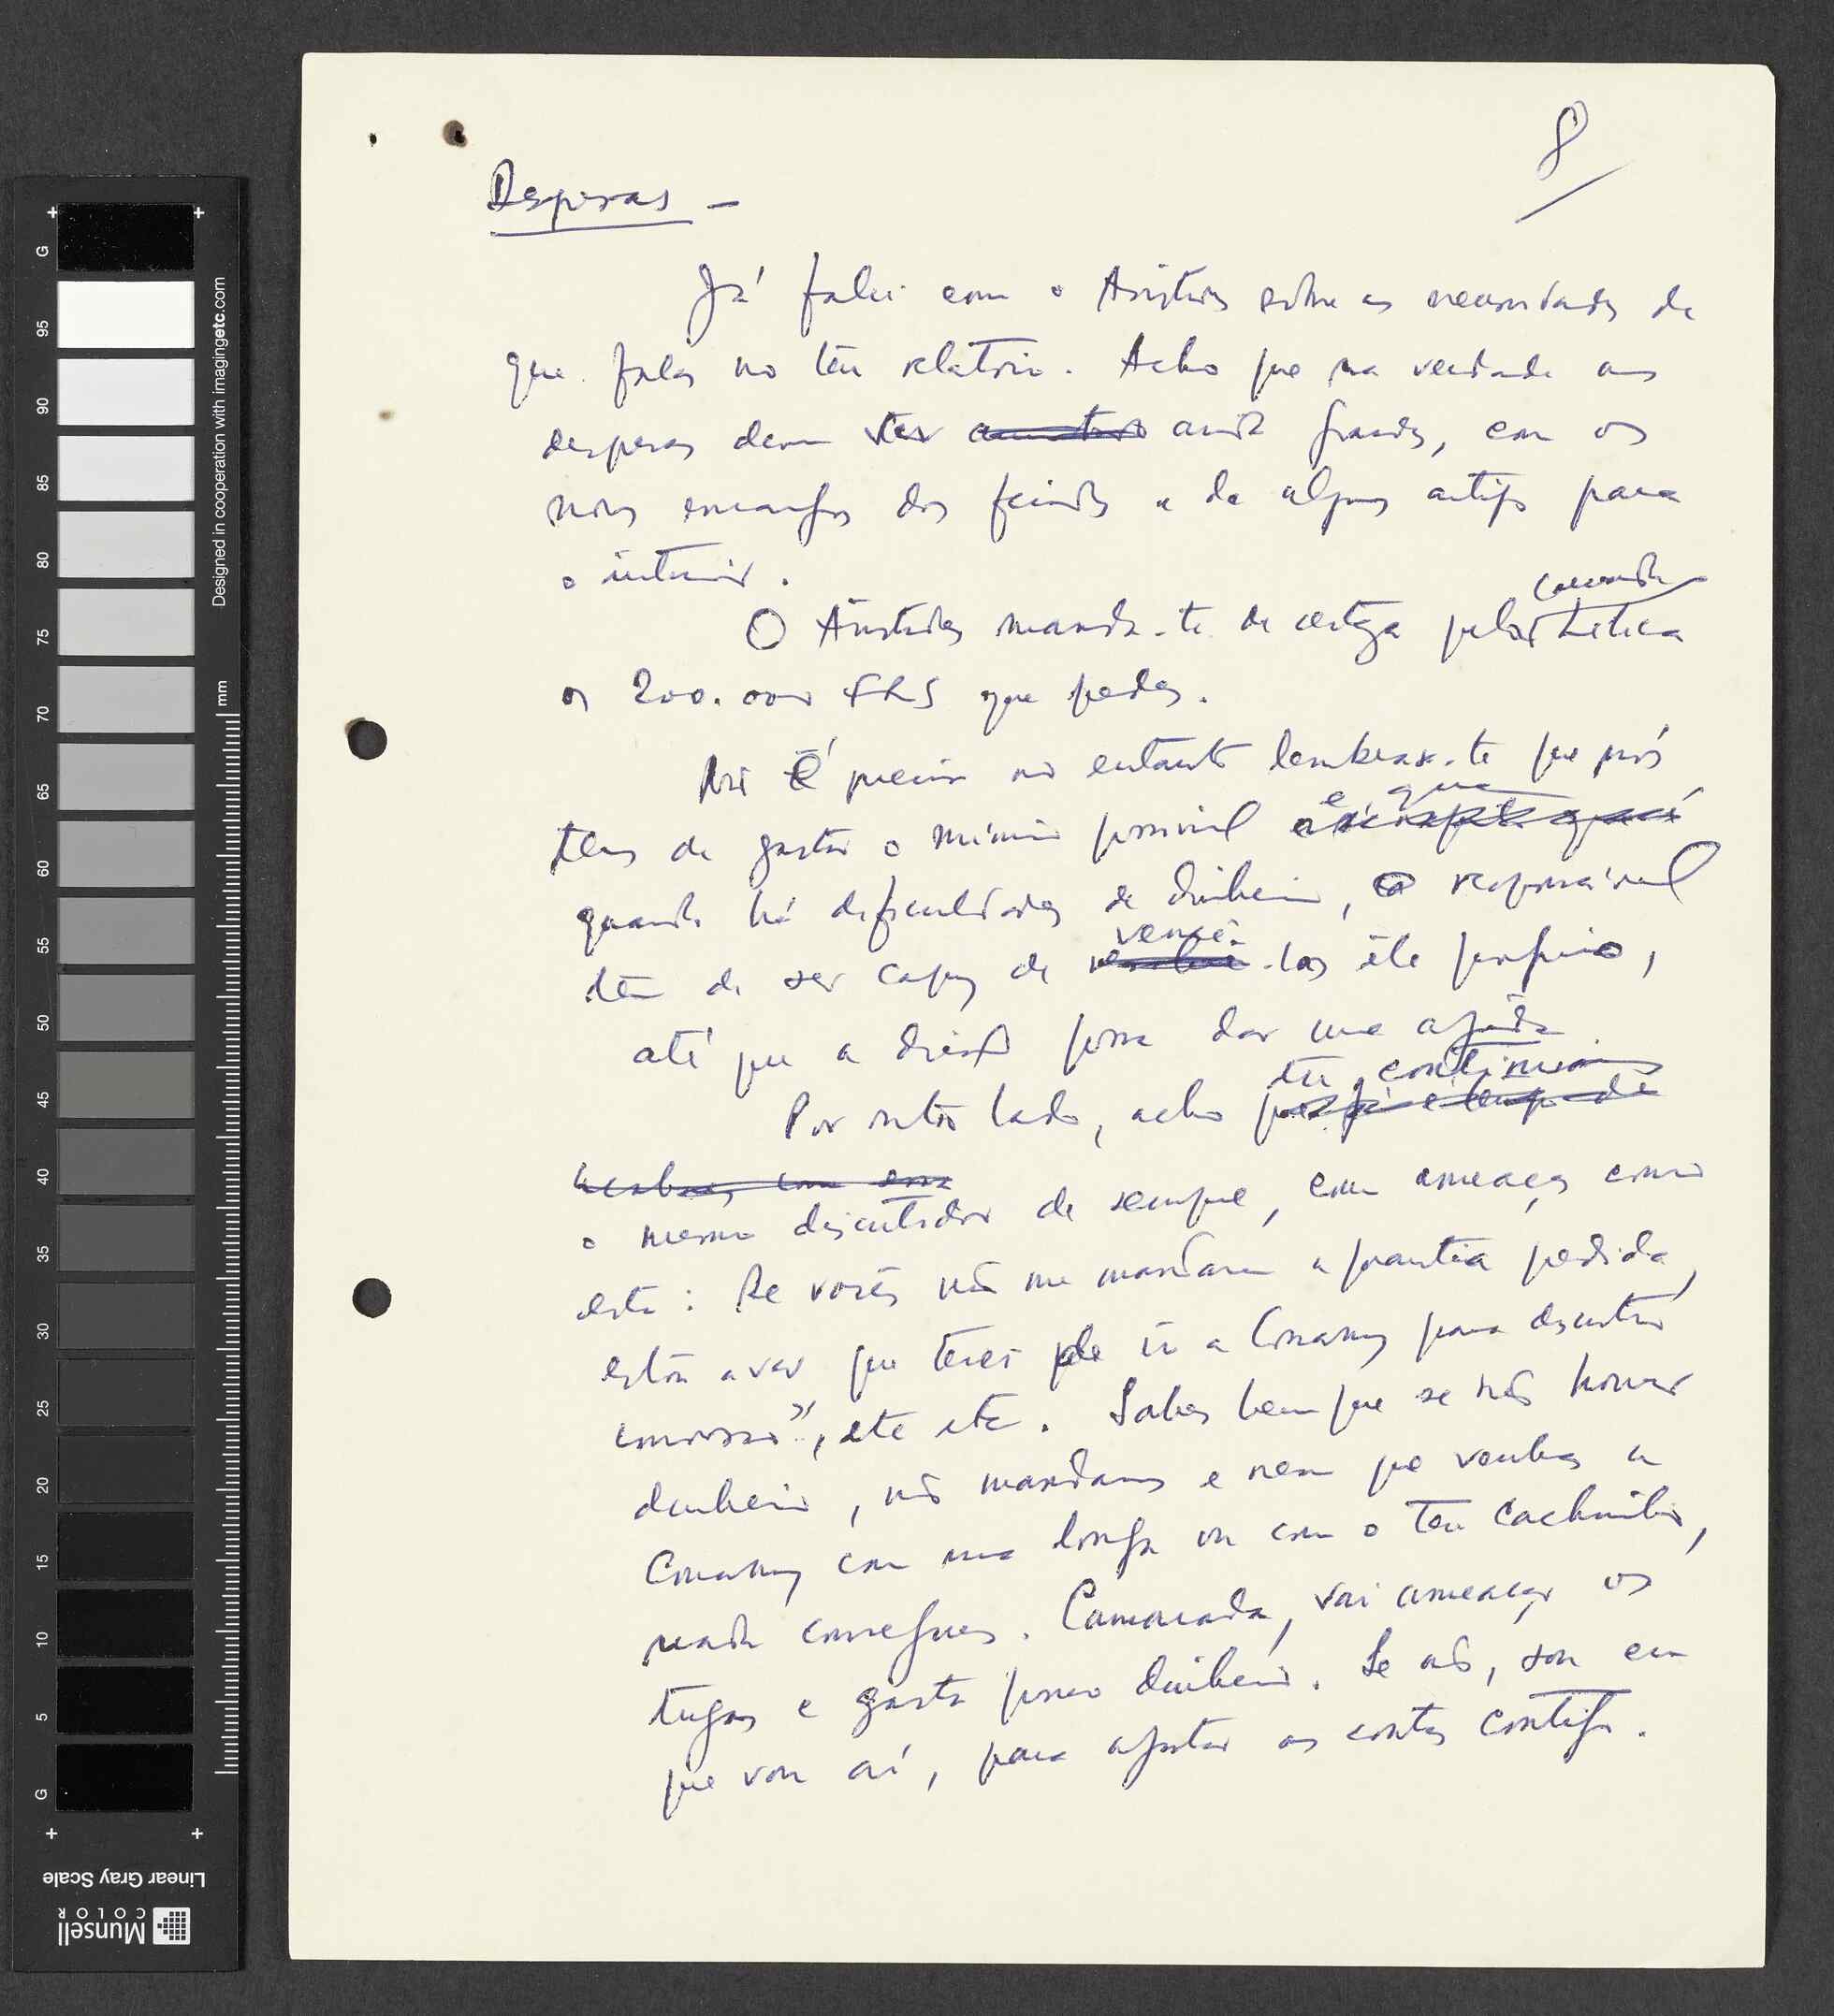 8
Despesas -
Já falei com o Aristides sobre as necessidades de
que falas no teu relatório. Acho que na verdade as
despesas devem ser ainda grandes, com os
novos encargos dos feridos e de alguns artigos para
o interior.
O Aristides manda-te de certeza pelo camarada
os 200.000 FRS que pedes.
É preciso no entanto lembrar-te que nós
temos de gastar o mínimo possível e que
quando há dificuldades de dinheiro, o responsável
tem de ser capaz de vencê-las êle próprio,
até que a direção possa dar uma ajuda
Por outro lado, acho que tu continuas
acabares com essa
o mesmo discutidor de sempre, com ameaças como
esta: Se vocês não me mandarem a quantia pedida,
estou a ver que terei de ir a Conakry para discutir
connosco", etc etc. Sabes bem que se não houver
dinheiro, não mandamos e nem que venhas a
Conakry com uma longa ou com o teu cachimbo,
nada consegues. Camarada, vai ameaçar os
tugas e gasta pouco dinheiro. Se não, sou eu
que vou aí, para ajustar as contas contigo.
G
95
90
85
80
75
70
65
60
55
50
45
40
35
30
25
20
15
10
5
G
mm
Designed in cooperation with imagingetc.com
Linear Gray Scale
Munsell
COLOR